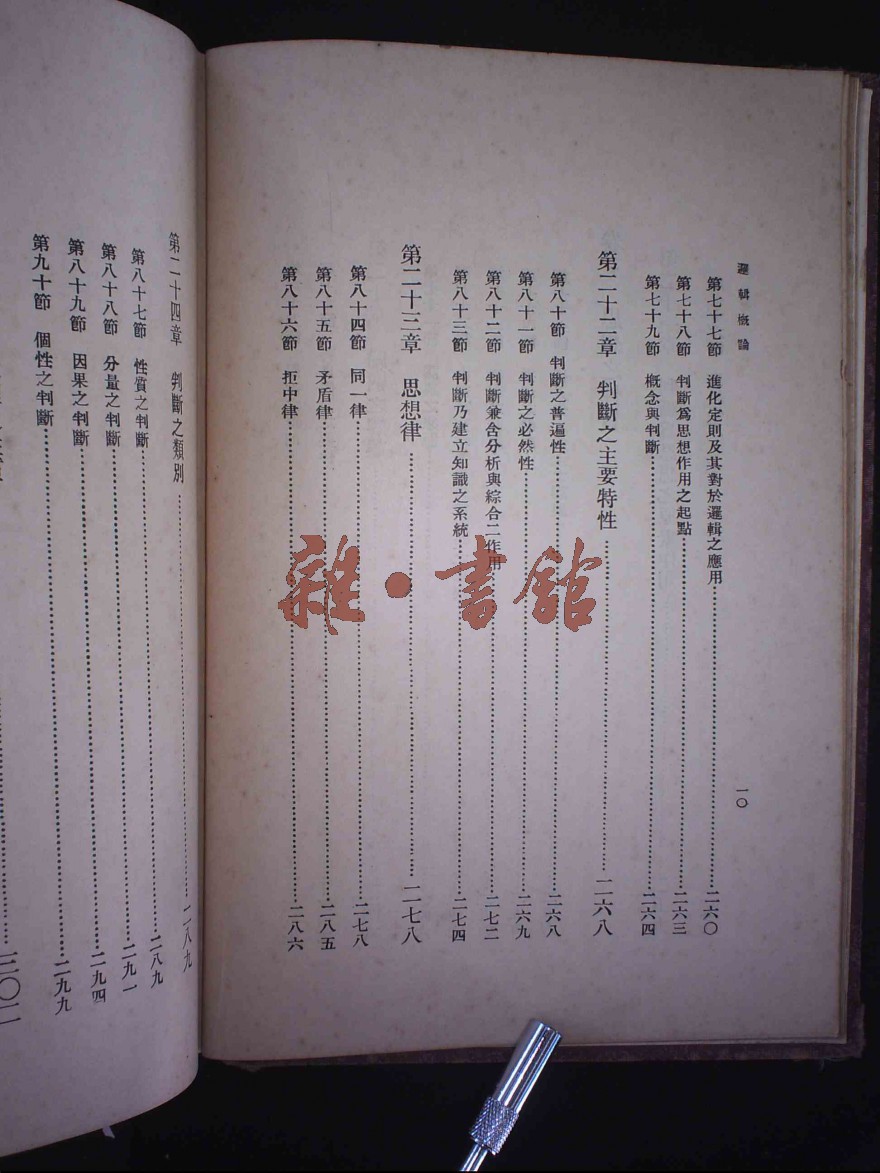 邏輯概論
一〇
第七十七節 進化定則及其對於邏輯之應用……二六〇
第七十八節 判斷爲思想作用之起點……二六三
第七十九節 概念與判斷……二六四
第二十二章 判斷之主要特性……二六八
第八十節 判斷之普遍性……二六八
第八十一節 判斷之必然性……二六九
第八十二節 判斷兼含分析與綜合二作用……二七二
第八十三節 判斷乃建立知識之系統……二七四
第二十三章 思想律……二七八
第八十四節 同一律……二七八
第八十五節 矛盾律……二八五
第八十六節 拒中律……二八六
第二十四章 判斷之類別……二八九
第八十七節 性質之判斷……二八九
第八十八節 分量之判斷……二九一
第八十九節 因果之判斷……二九四
第九十節 個性之判斷……二九九
三〇二
雜·書館